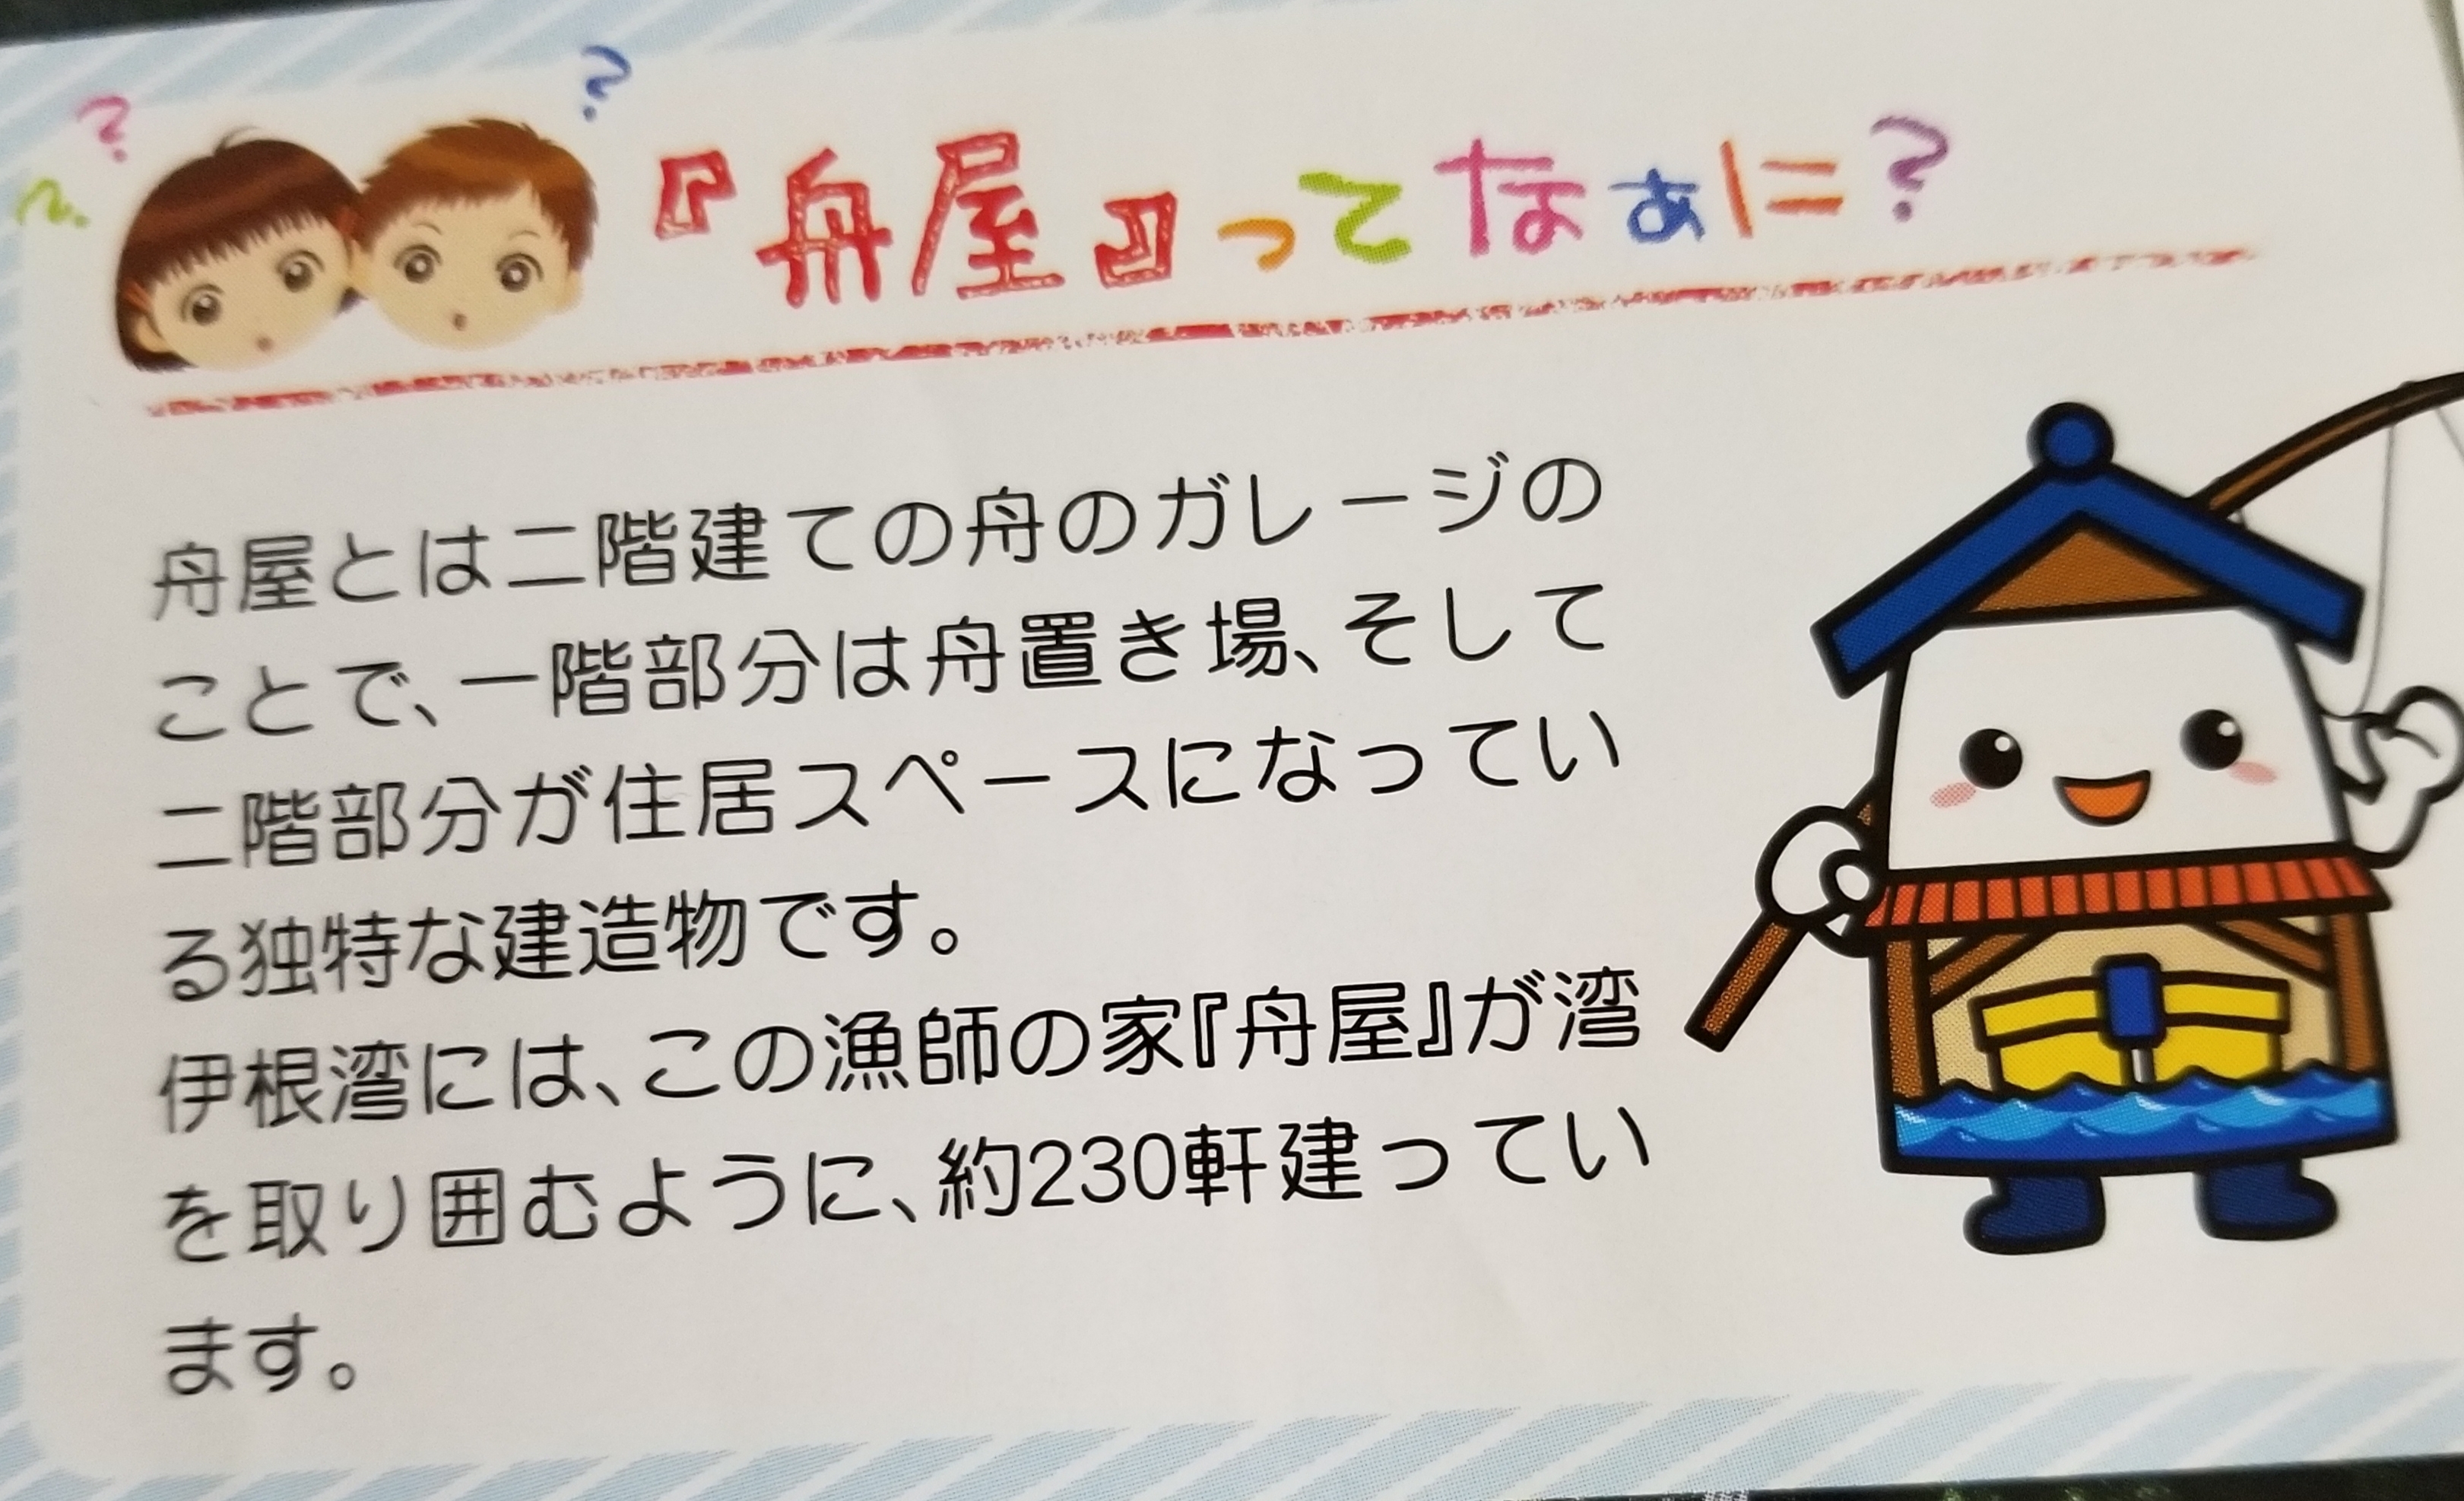 『舟屋』ってなぁに?
舟屋とは二階建ての舟のガレージの
ことで、一階部分は舟置き場、そして
二階部分が住居スペースになってい
る独特な建造物です。
伊根湾には、この漁師の家『舟屋』が湾
を取り囲むように、約230軒建ってい
ます。